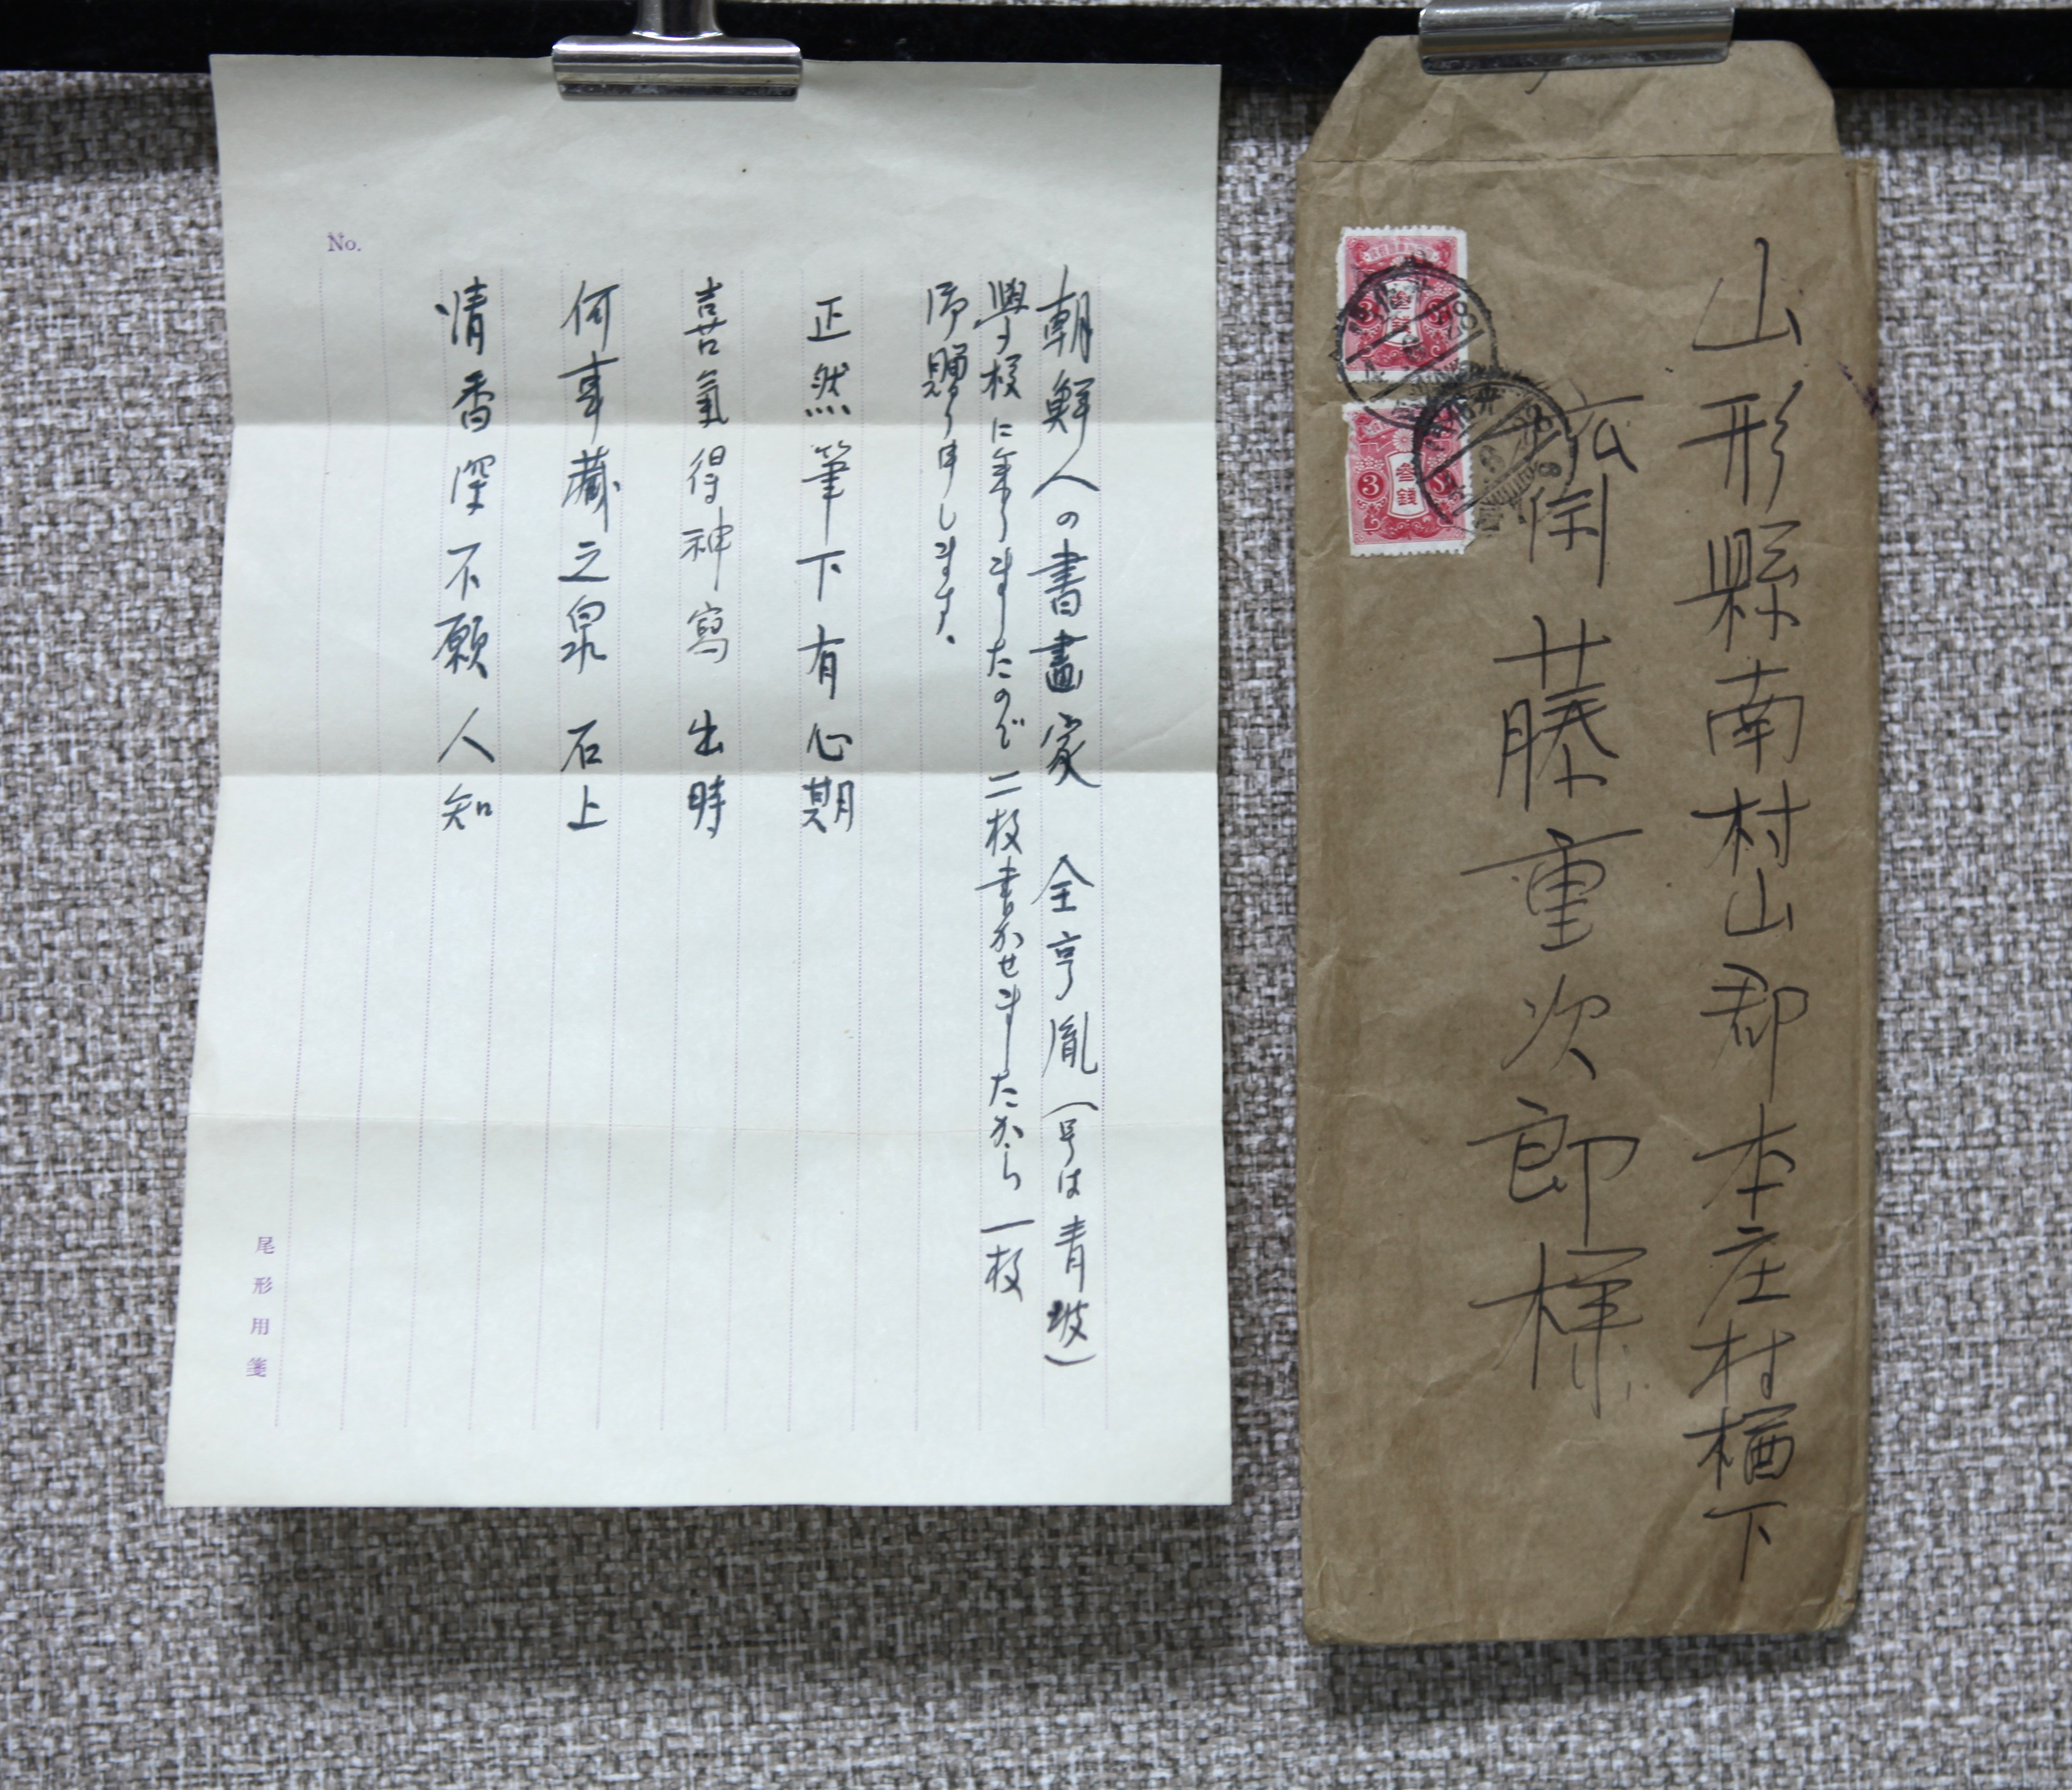 朝鮮人の書畫家 全亨胤(号は青坡)
學校に来りましたので二枚書かせましたから一枚
御贈り申します.
正然筆下有心期
喜氣得神寫出時
何事藏之泉石上
清香深不願人知
No.
尾形用箋
山形縣南村山郡本庄村楢下
藤重次郎様
参錢
3